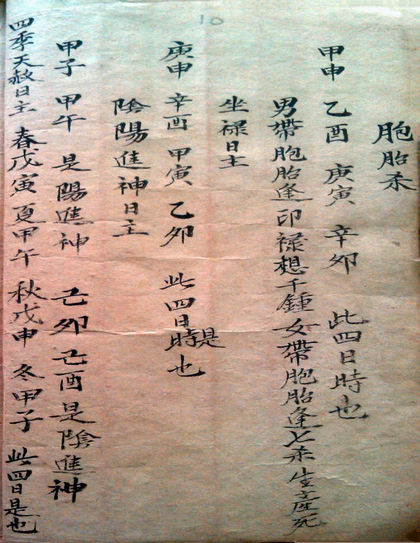 10
胞胎杀
甲申 乙酉 庚寅 辛卯 此四日時也
男帶胞胎逢印禄想千鍾女帶胞胎逢七杀生產死
坐禄日主
庚申 辛酉 甲寅 乙卯 此四日時是也
陰陽進神日主
甲子 甲午 是陽進神 己卯己酉是陰進神
四季天赦日主 春戊寅 夏甲午 秋戊申 冬甲子 此四日是也